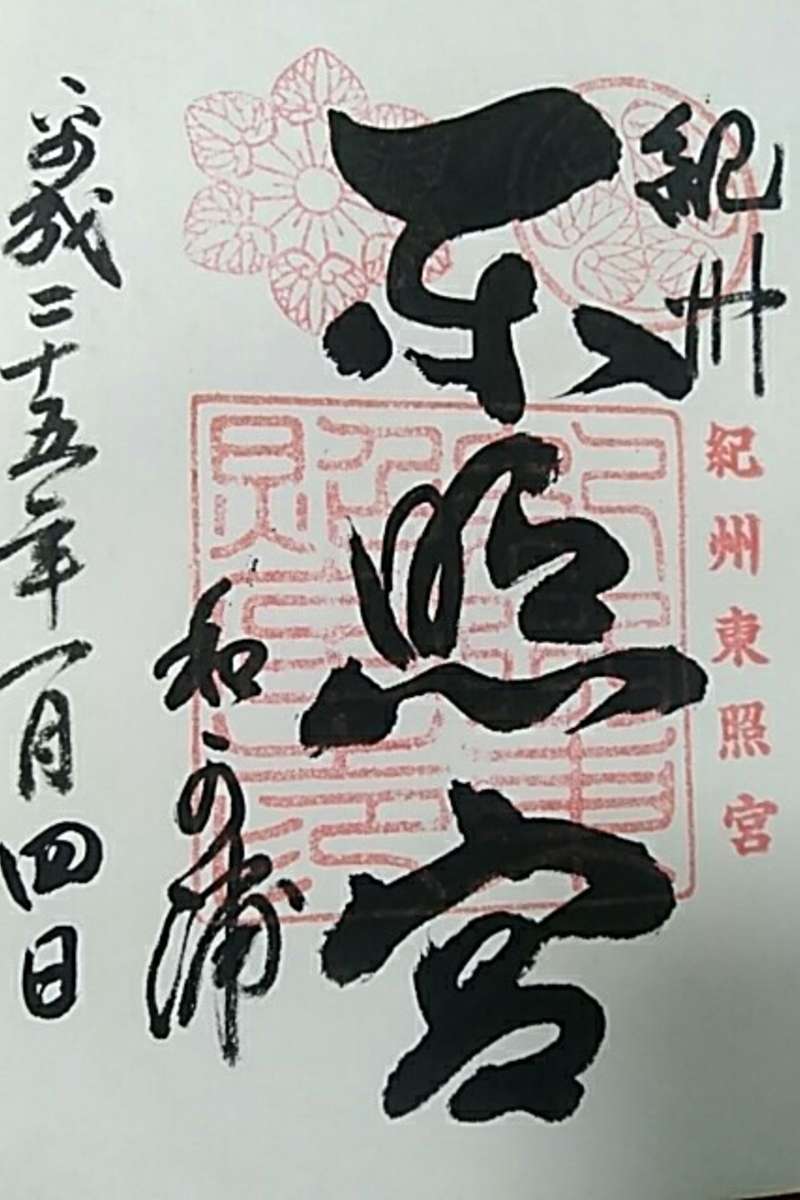 紀州
紀州東照宮
東照宮
和可浦
平成二十五年一月四日